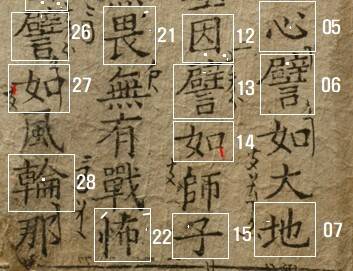 心譬如大地
因譬如師子
畏無有戰怖
譬如風輪那
05
06
07
12
13
14
15
21
22
26
27
28